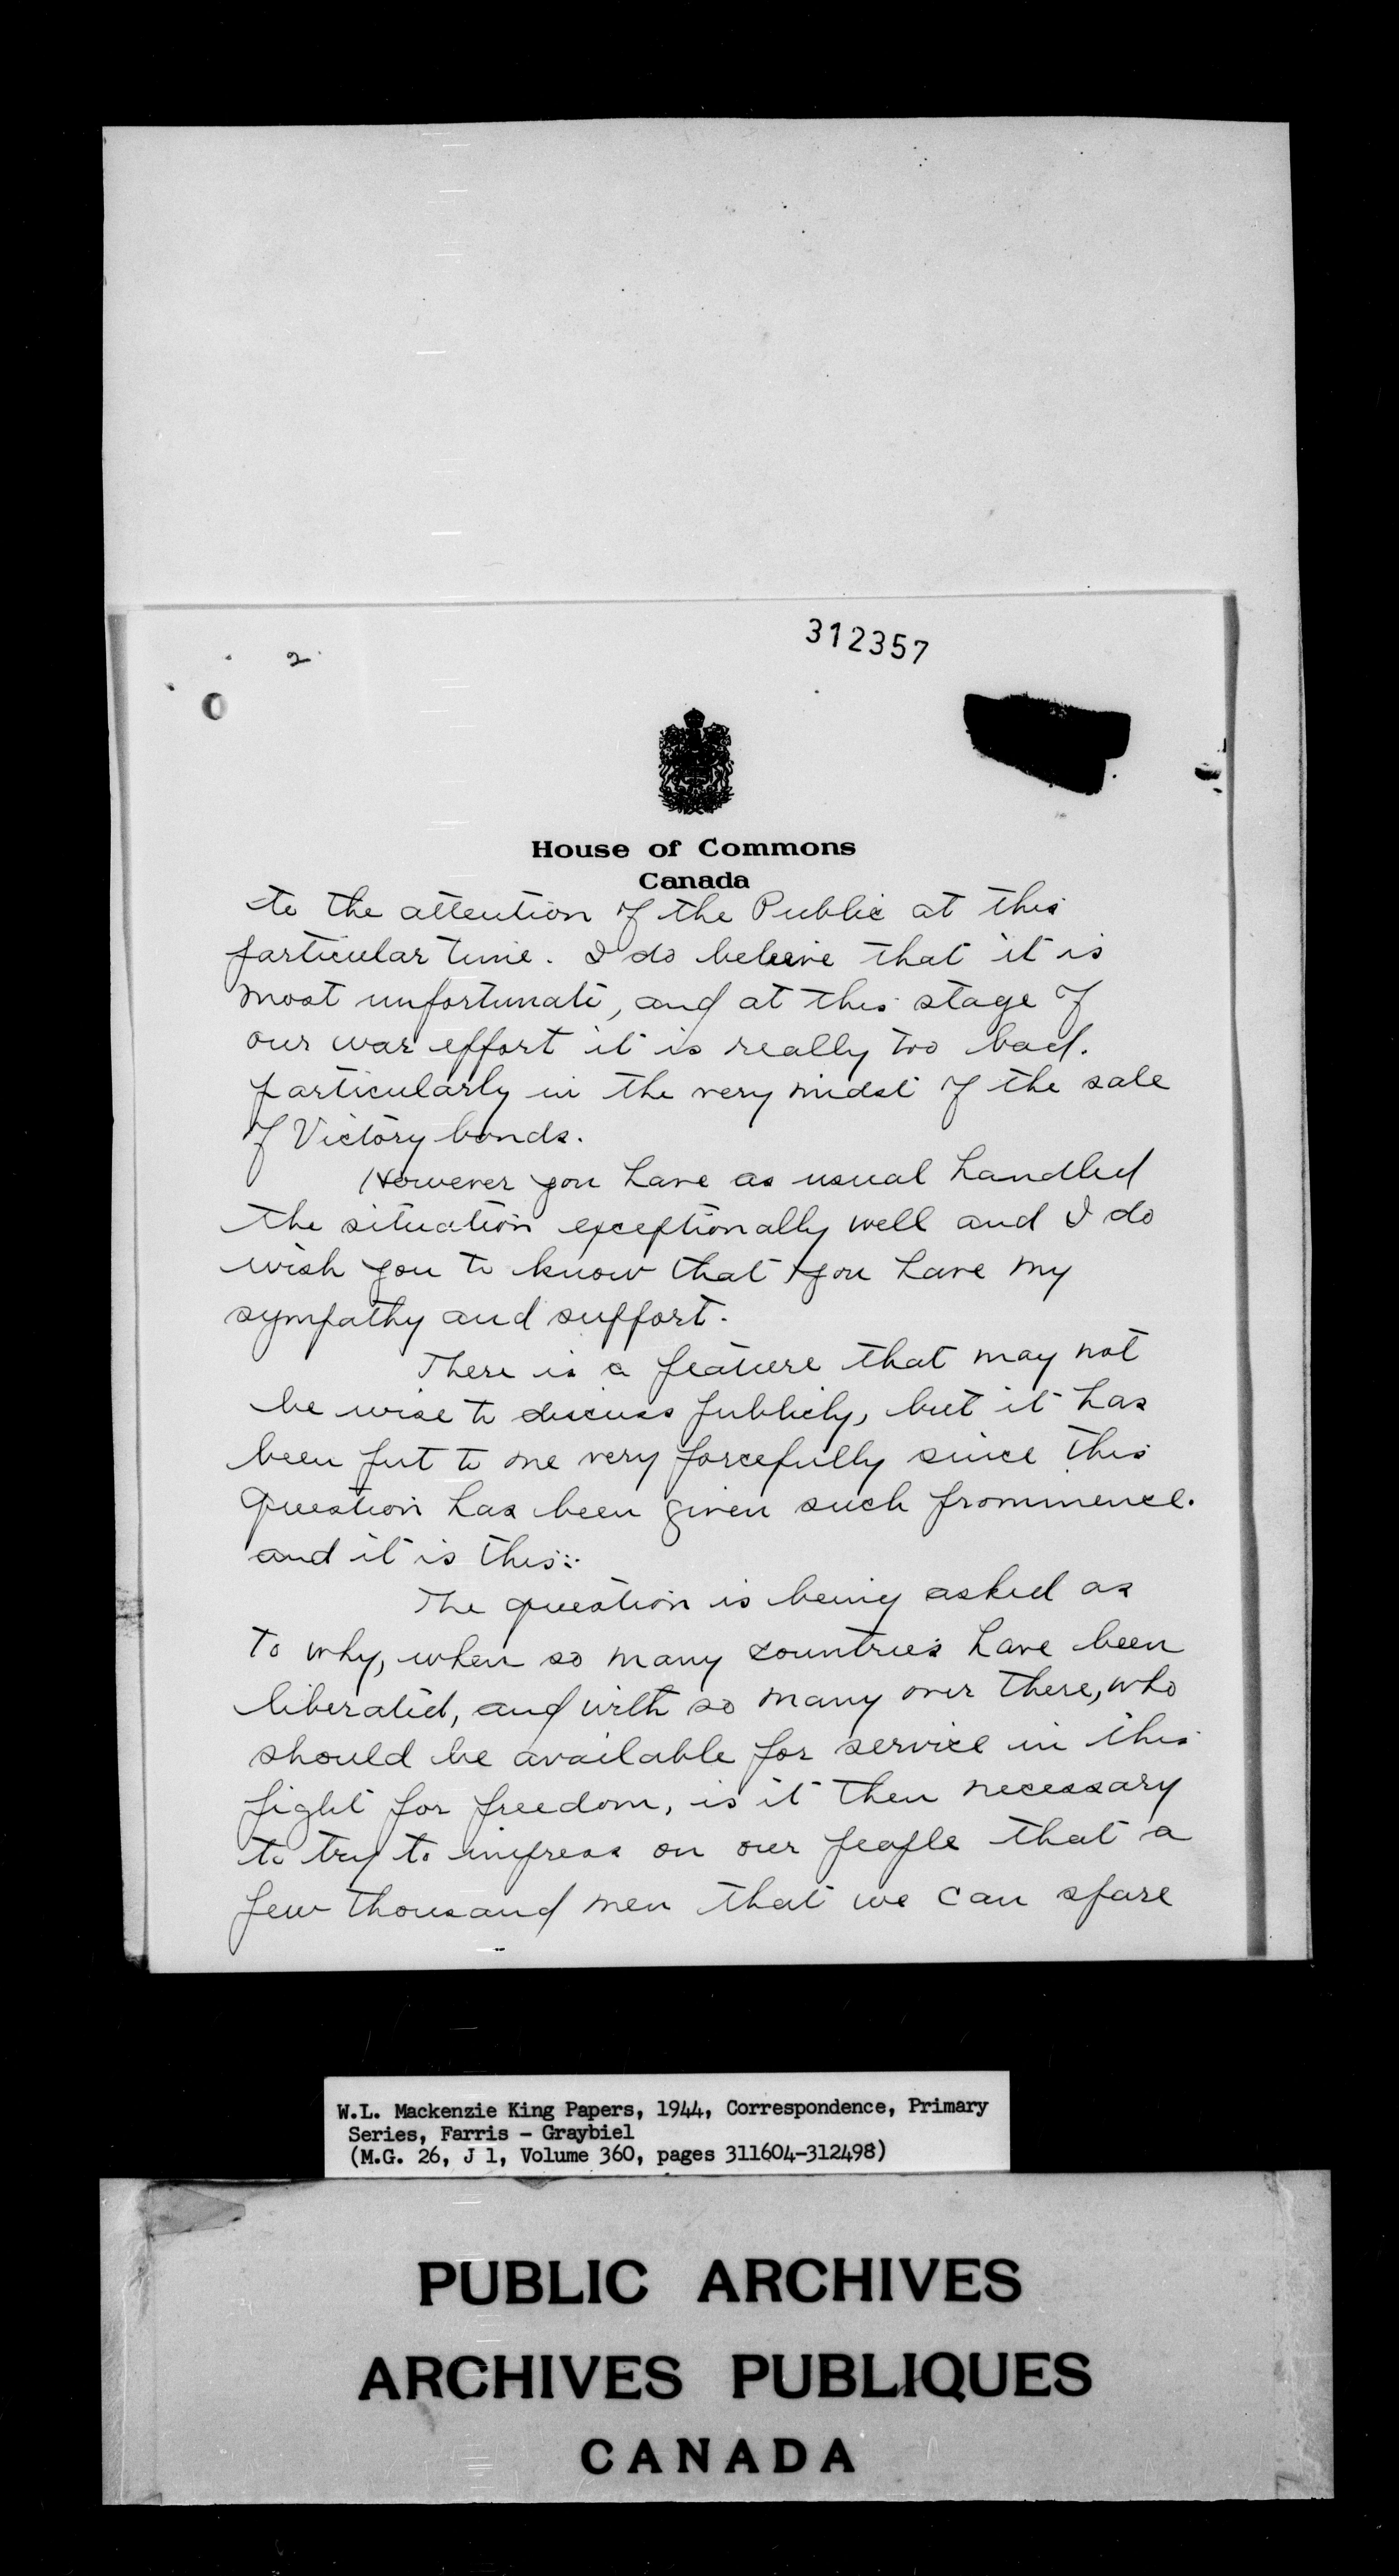 312357
2
House of Commons
Canada
to the attention of the Public at this
particular time. I do beleeive that it is
most unfortunate, and at this stage of
our war effort it is really too bad.
particularly in the very midst of the sale
of Victory bonds.
However you have as usual handled
the situation exceptionally well and I do
wish you to know that you have my
sympathy and support.
There is a feature that may not
be wise to discuss publicly, but it has
been put to me very forcefully since this
question has been given such prominence.
and it is this:-
The question is being asked as
to why, when so many countries have been
liberated, and with so many over there, who
should be available for service in this
fight for freedom, is it then necessary
to try to impress on our people that a
few thousand men that we can spare
W.L. Mackenzie King Papers, 1944, Correspondence, Primary
Series, Farris - Graybiel
(M.G. 26, J 1, Volume 360, pages 311604-312498)
PUBLIC ARCHIVES
ARCHIVES PUBLIQUES
CANADA